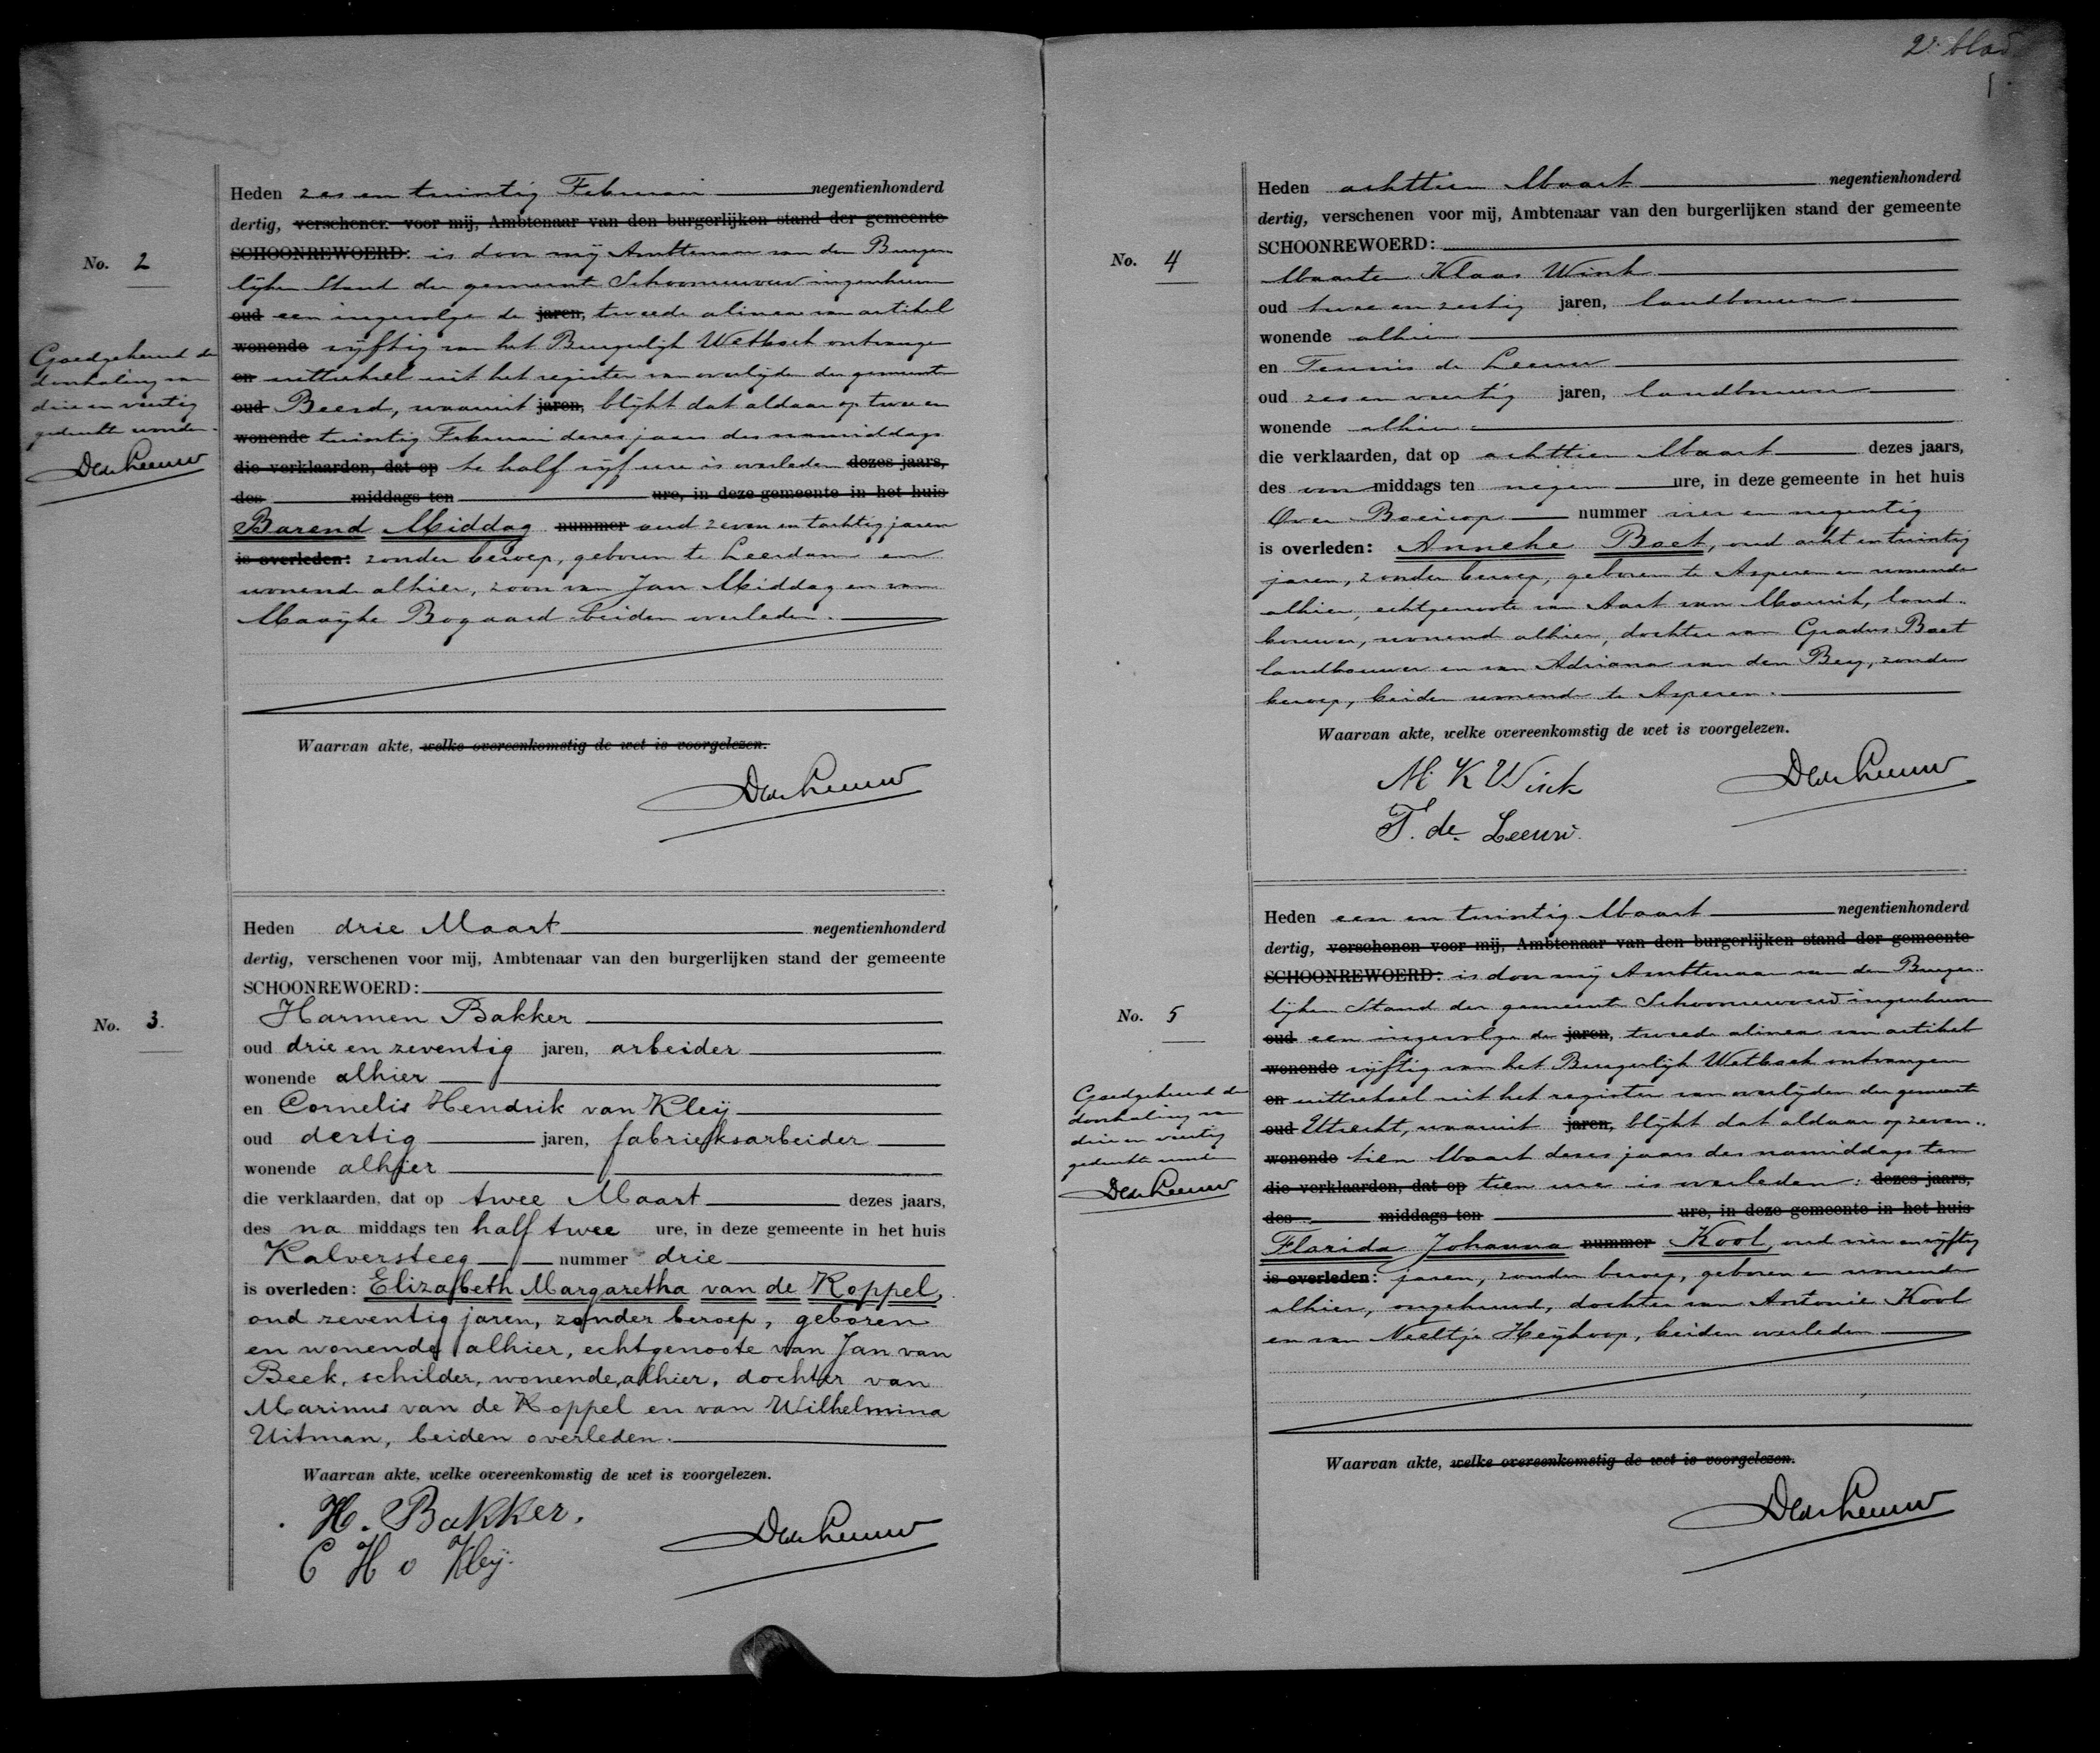 2e blad
No. 2
Heden zes en twintig Februari negentienhonderd
dertig, verschenen voor mij, Ambtenaar van den burgerlijken stand der gemeente
SCHOONREWOERD: is door mij Ambtenaar van den Burger
lijken Stand der gemeente Schoonrewoerd ingeschreven
oud een ingevolge de jaren, tweede alinea van artikel
wonende vijftig van het Burgerlijk Wetboek ontvangen
en uittreksel uit het register van overlijden der gemeente
oud Beesd, waaruit jaren, blijkt dat aldaar op twee en
wonende twintig Februari dezes jaars des namiddags
die verklaarden, dat op te half vijf ure is overleden dezes jaars,
des middags ten ure, in deze gemeente in het huis
Barend Middag nummer oud zeven en tachtig jaren
is overleden: zonder beroep, geboren te Leerdam en
wonende alhier, zoon van Jan Middag en van
Maaijke Bogaard beiden overleden.
Waarvan akte, welke overeenkomstig de wet is voorgelezen.
DdeLeeuw
Goedgekeurd de
doorhaling van
drie en veertig
gedrukte woorden.
DdeLeeuw
No. 3.
Heden drie Maart negentienhonderd
dertig, verschenen voor mij, Ambtenaar van den burgerlijken stand der gemeente
SCHOONREWOERD:
Harmen Bakker
oud drie en zeventig jaren, arbeider
wonende alhier
en Cornelis Hendrik van Kleij
oud dertig jaren, fabrieksarbeider
wonende alhier
die verklaarden, dat op twee Maart dezes jaars,
des na middags ten half twee ure, in deze gemeente in het huis
Kalversteeg nummer drie
is overleden: Elizabeth Margaretha van de Koppel,
oud zeventig jaren, zonder beroep, geboren
en wonende alhier, echtgenoote van Jan van
Beek, schilder, wonende alhier, dochter van
Marinus van de Koppel en van Wilhelmina
Uitman, beiden overleden.
Waarvan akte, welke overeenkomstig de wet is voorgelezen.
H. Bakker.
C H v Kleij.
DdeLeeuw
No. 4
Heden achttien Maart negentienhonderd
dertig, verschenen voor mij, Ambtenaar van den burgerlijken stand der gemeente
SCHOONREWOERD:
Maarten Klaas Wink
oud twee en zestig jaren, landbouwer
wonende alhier
en Teunis de Leeuw
oud zes en veertig jaren, landbouwer
wonende alhier
die verklaarden, dat op achttien Maart dezes jaars,
des voor middags ten negen ure, in deze gemeente in het huis
Over Boeicop nummer vier en negentig
is overleden: Anneke Baet, oud acht en twintig
jaren, zonder beroep, geboren te Asperen en wonende
alhier, echtgenoote van Aart van Mourik, land-
bouwer, wonend alhier, dochter van Gradus Baet
landbouwer en van Adriana van den Berg, zonder
beroep, beiden wonende te Asperen.
Waarvan akte, welke overeenkomstig de wet is voorgelezen.
M. K Wink
T. de Leeuw.
DdeLeeuw
No. 5
Heden een en twintig Maart negentienhonderd
dertig, verschenen voor mij, Ambtenaar van den burgerlijken stand der gemeente
SCHOONREWOERD: is door mij Ambtenaar van den Burger-
lijken Stand der gemeente Schoonrewoerd ingeschreven
oud een ingevolge de jaren, tweede alinea van artikel
wonende vijftig van het Burgerlijk Wetboek ontvangen
en uittreksel uit het register van overlijden der gemeente
oud Utrecht, waaruit jaren, blijkt dat aldaar op zeven-
wonende tien Maart dezes jaars des namiddags ten
die verklaarden, dat op tien ure is overleden: dezes jaars,
des middags ten ure, in deze gemeente in het huis
Florida Johanna nummer Kool, oud vier en vijftig
is overleden: jaren, zonder beroep, geboren en wonende
alhier, ongehuwd, dochter van Antonie Kool
en van Neeltje Heijkoop, beiden overleden
Waarvan akte, welke overeenkomstig de wet is voorgelezen.
DdeLeeuw
Goedgekeurd de
doorhaling van
drie en veertig
gedrukte woorden
DdeLeeuw